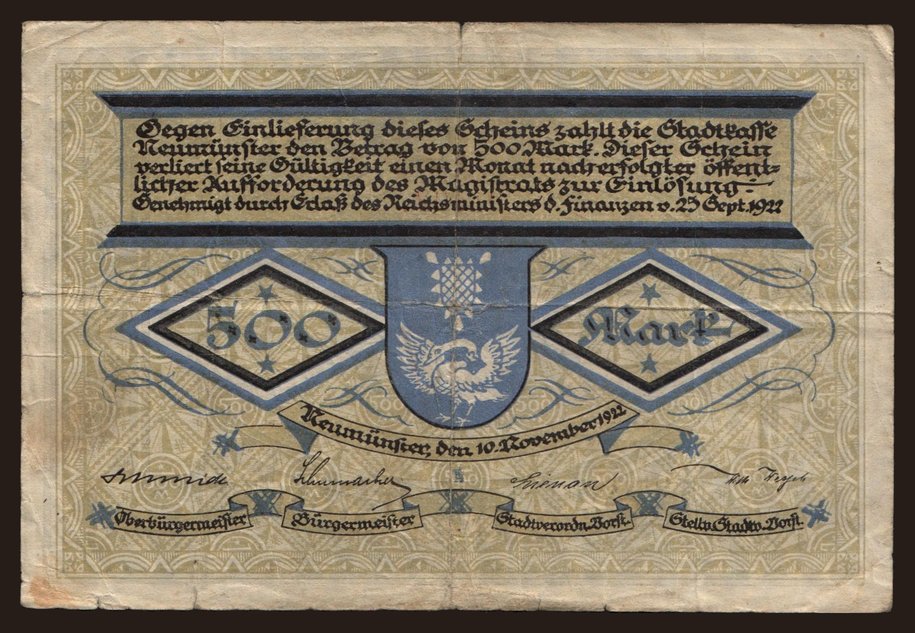 Gegen Einlieferung dieses Scheins zahlt die Stadtkasse
Neumünster den Betrag von 500 Mark. Dieser Schein
verliert seine Gültigkeit einen Monat nach erfolgter öffent-
licher Aufforderung des Magistrats zur Einlösung.
Genehmigt durch Erlaß des Reichsministers d. Finanzen v. 25 Sept. 1922
500
Mark
Neumünster, den 10. November 1922
Schmidt
Schumacher
Oberbürgermeister
Bürgermeister
Stadtverordn. Vorst.
Stellv. Stadtv. Vorst.